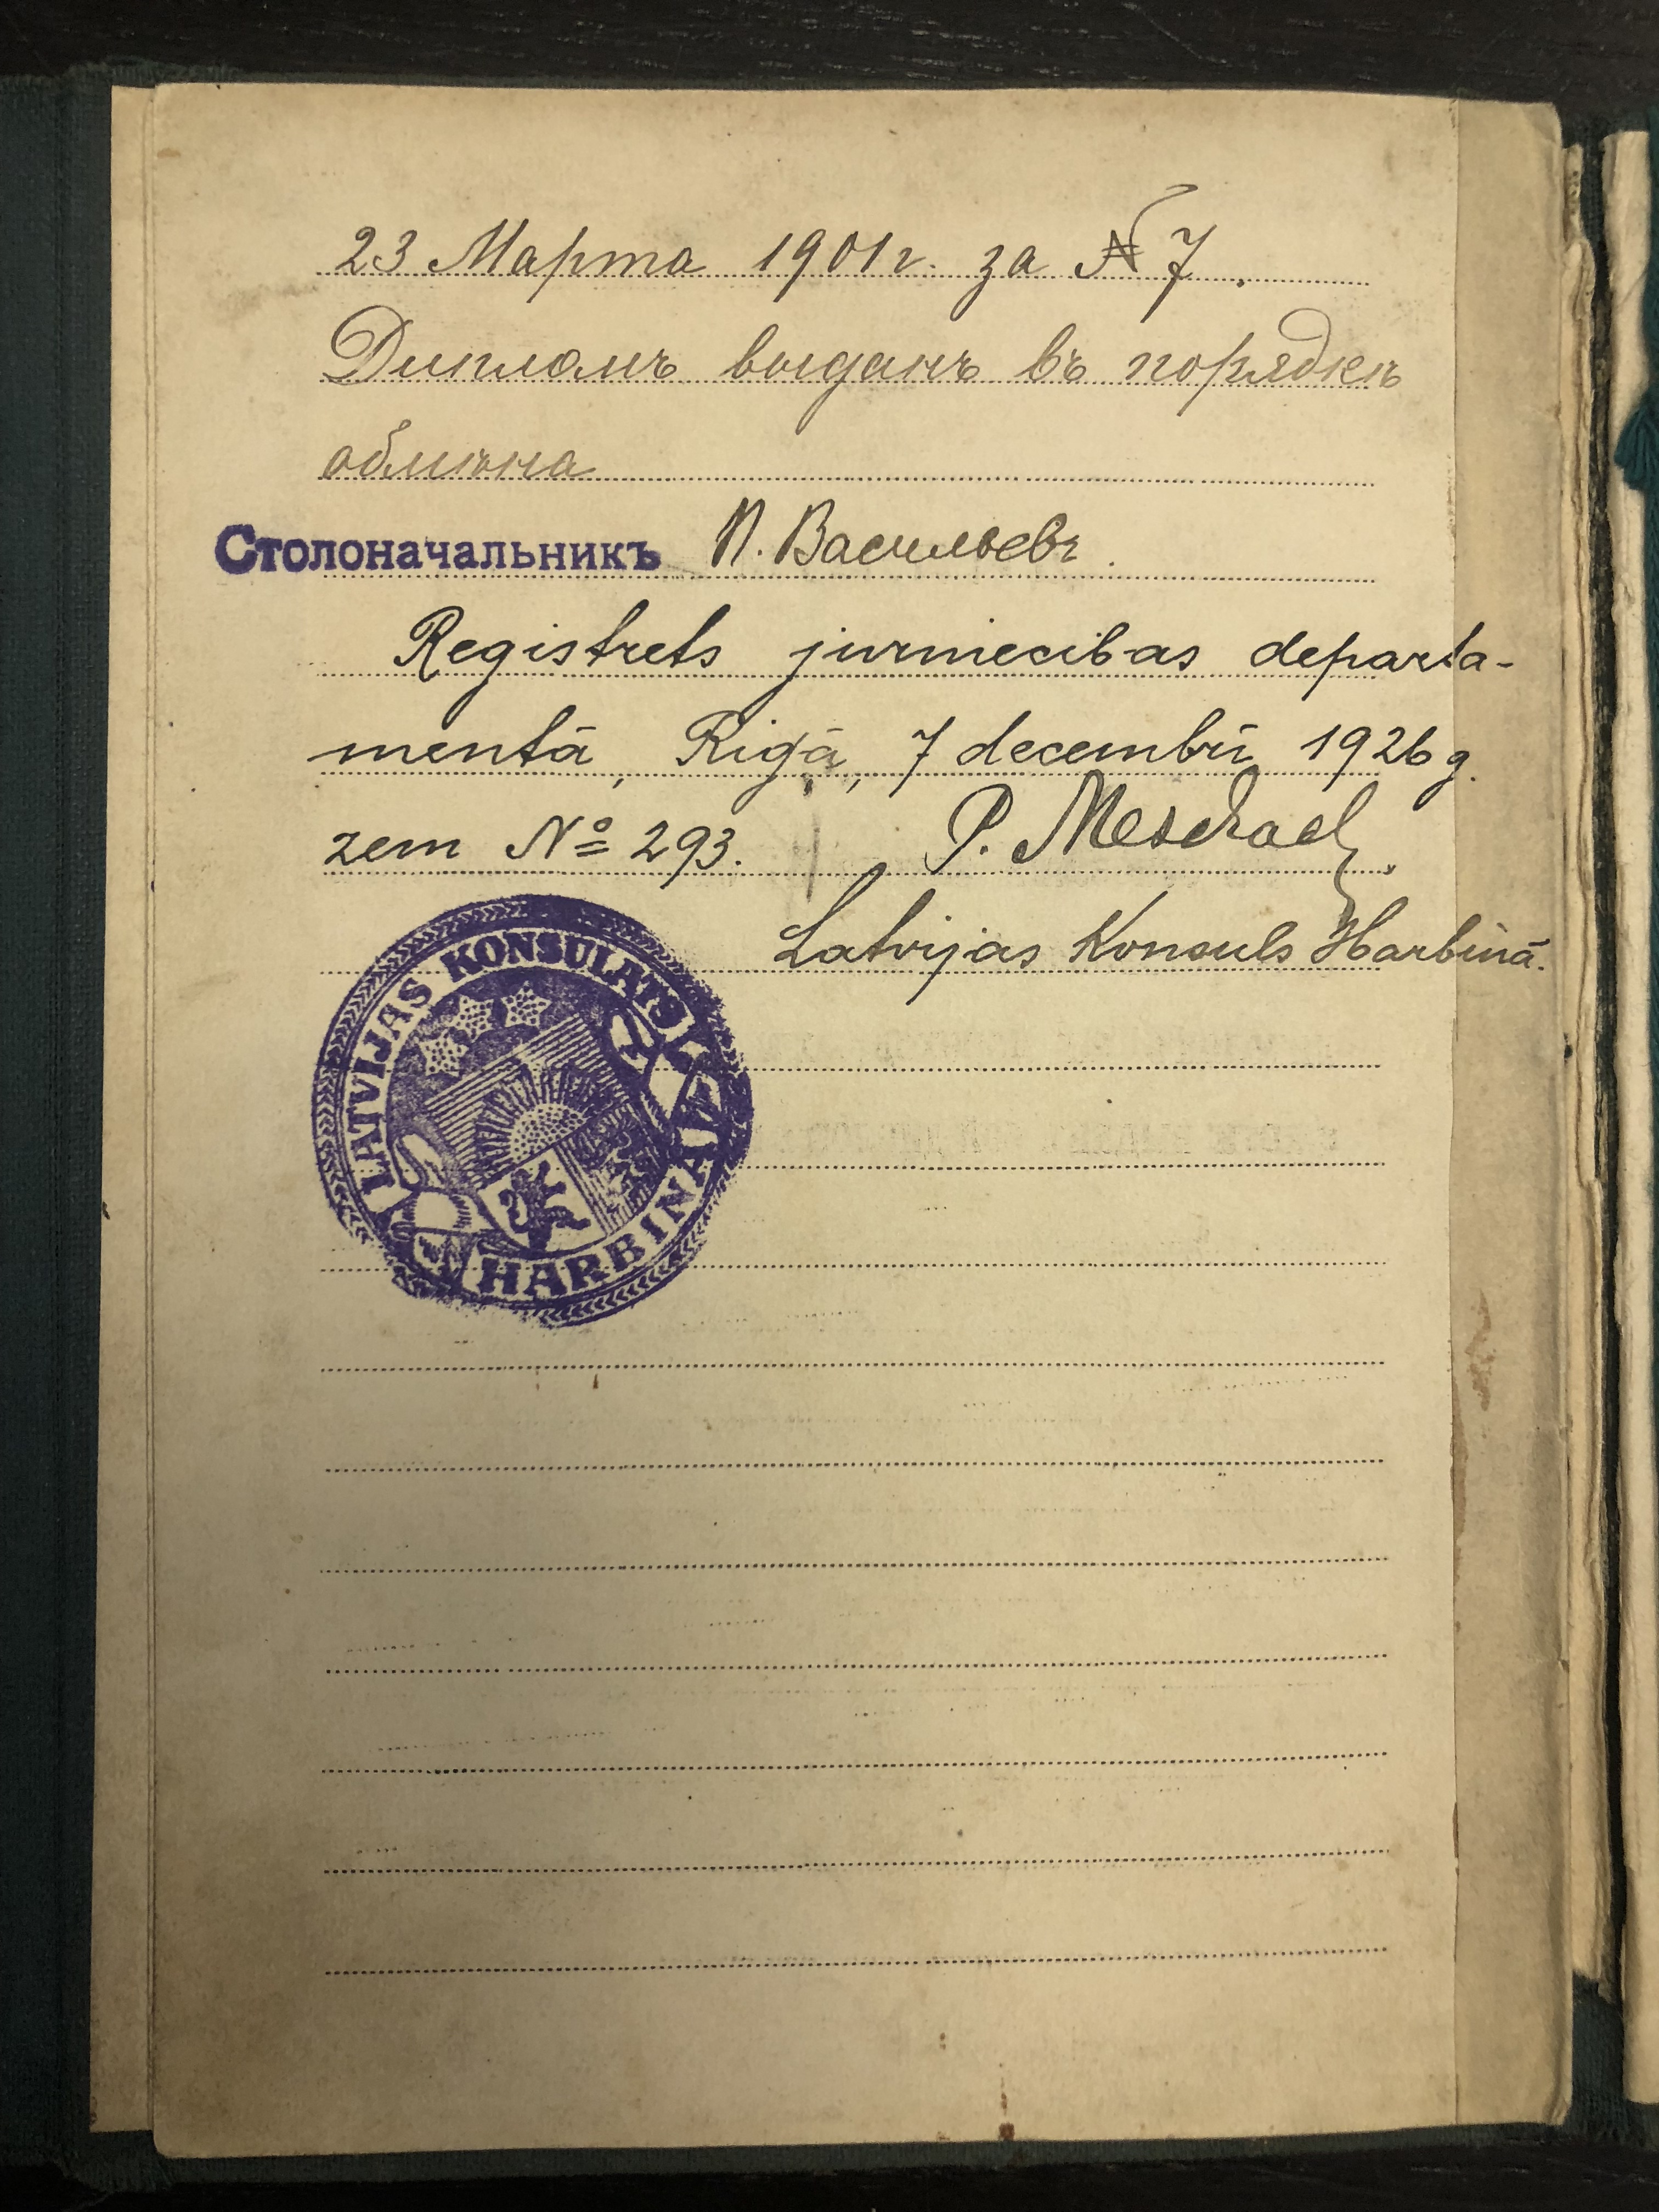 23 Марта 1901 г. за № 7.
Дипломъ выданъ въ порядкѣ
обмѣна
Столоначальникъ П. Васильевъ.
Registrets jurniecibas departa-
mentā, Rigā, 7 decembrī 1926 g.
zem № 293. P.
Latvijas Konsuls Harbinā.
LATVIJAS KONSULATS
HARBINĀ